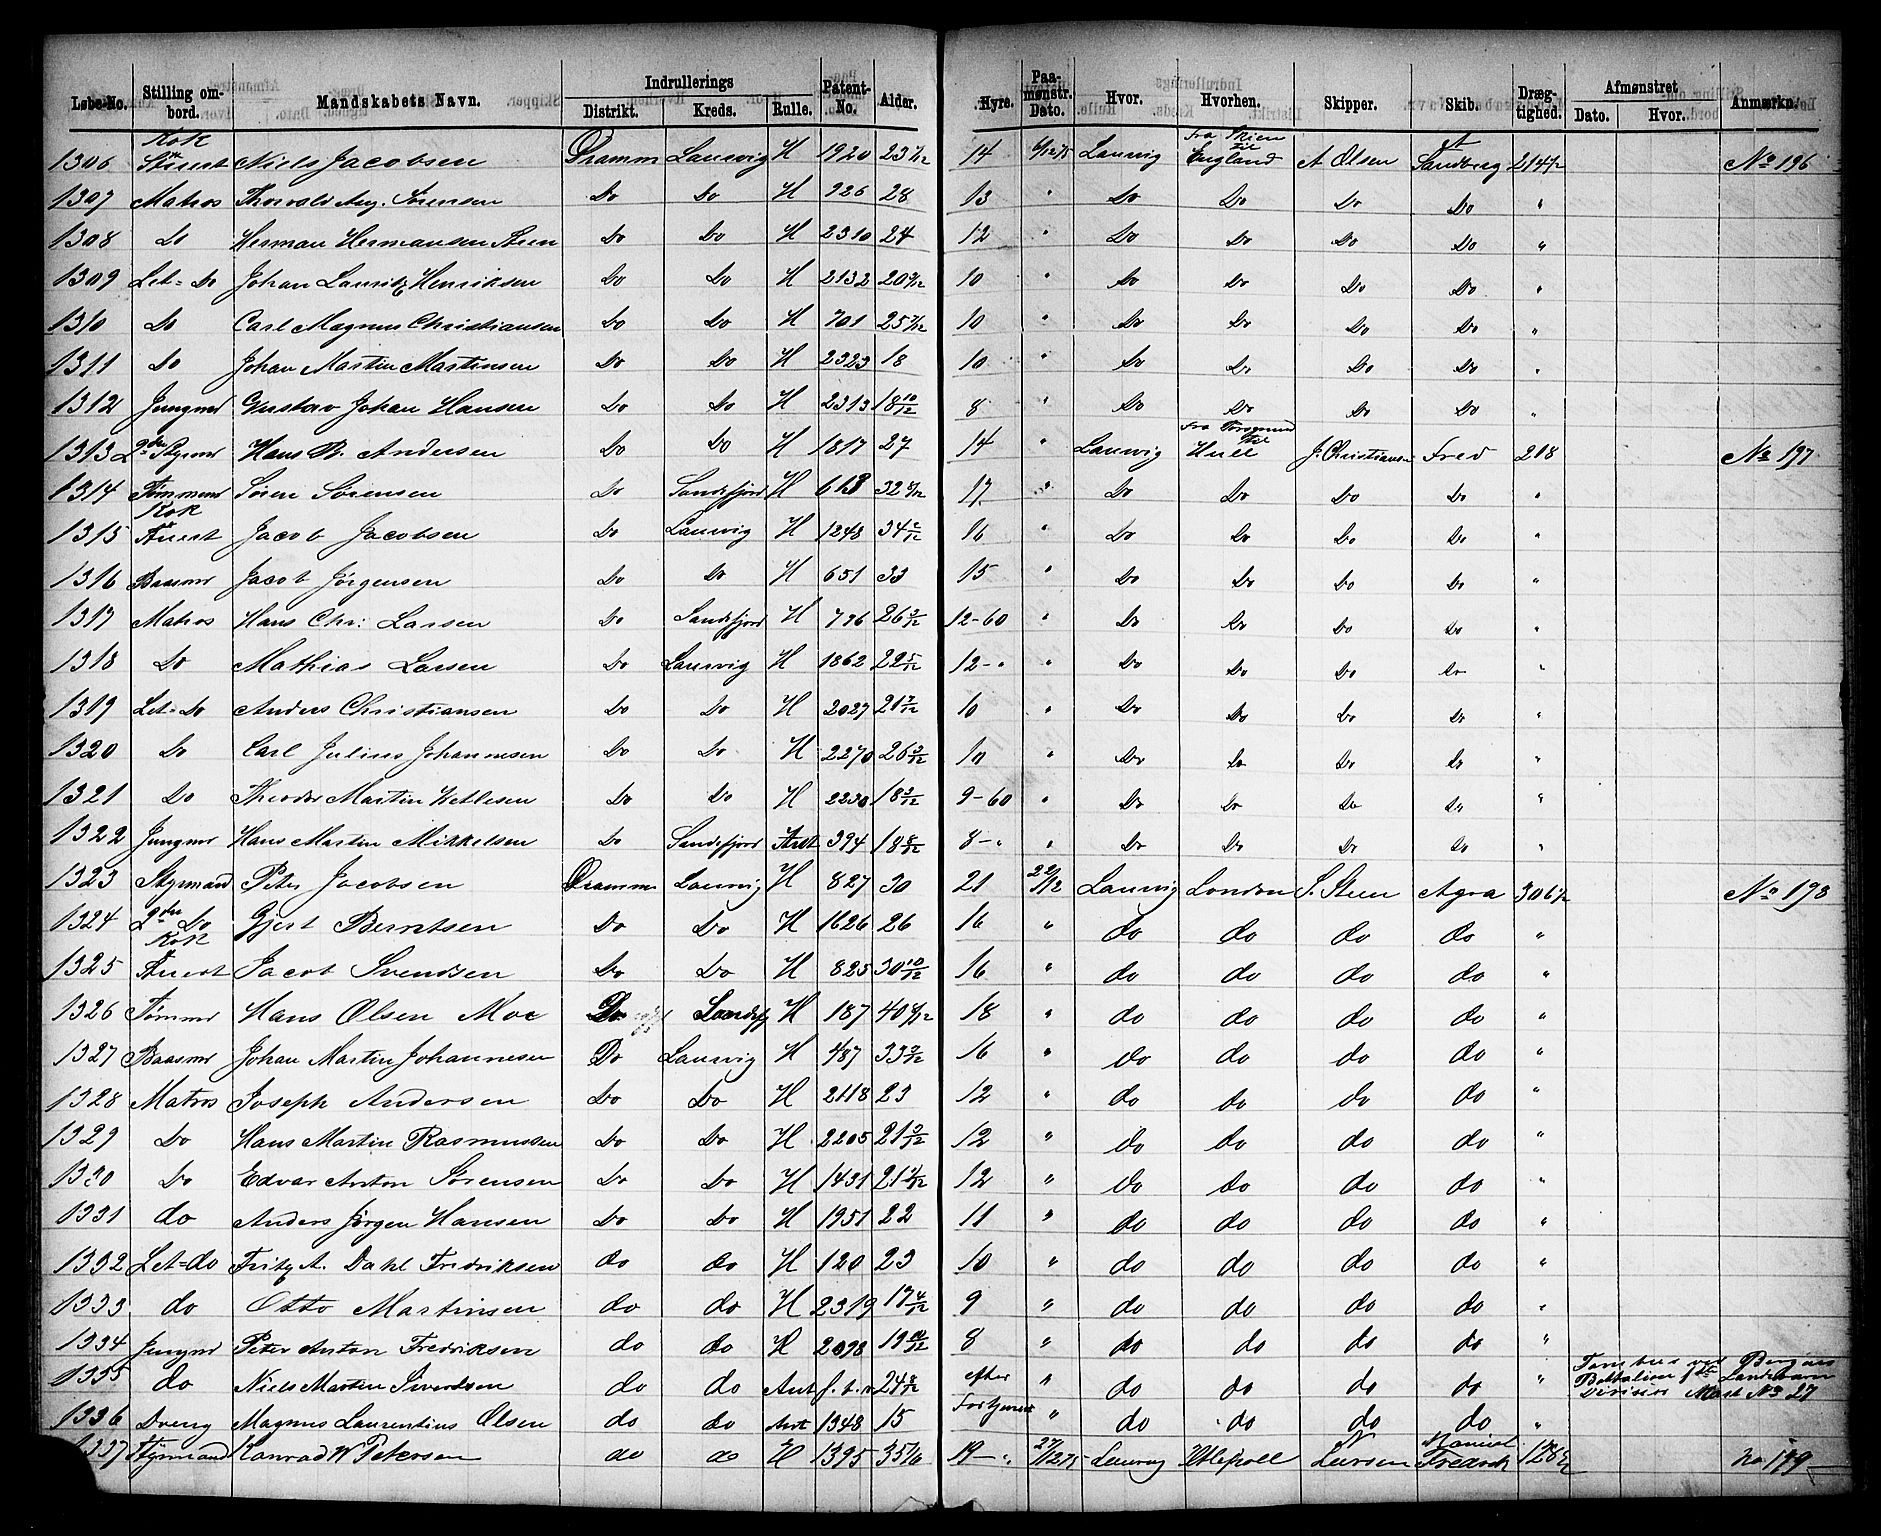 Løbe-No. Stilling ombord. Mandskabets Navn. Indrullerings Distrikt. Kreds. Rulle. Patent-No. Alder. Hyre. Paamønstr. Dato. Hvor. Hvorhen. Skipper. Skib. Drægtighed. Afmønstret Dato. Hvor. Anmærkn.
1306 Kok Stuert Niels Jacobsen Dramm Laurvig H 1920 14 Laurvig fra Skien til England A Olsen A Sandberg 214½ No 196
1307 Matros Thorvald Aug. Sörensen Do Do H 926 28 13 " Do Do Do Do "
1308 Do Herman Hermansen Steen Do Do H 2310 24 12 " Do Do Do Do "
1309 Let= Do Johan Lauritz Henriksen Do Do H 2132 20 9/12 10 " Do Do Do Do "
1310 Do Carl Magnus Christiansen Do Do H 701 25 7/12 10 " Do Do Do Do "
1311 Do Johan Martin Martinsen Do Do H 2323 18 10 " Do Do Do Do "
1312 Jungmd Gustav Johan Hansen Do Do H 2313 18 10/12 8 " Do Do Do Do "
1313 2den Styrmd Hans B. Andersen Do Do H 1817 27 14 " Laurvig fra Porsgrund til Hull J. Christiansen Fred 218 No 197
1314 Tømmermd Sören Sörensen Do Sandefjord H 613 32 8/12 17 " Do Do Do Do "
1315 Kok Stuert Jacob Jacobsen Do Laurvig H 1248 34 2/12 16 " Do Do Do Do "
1316 Baasmd Jacob Jörgensen Do Do H 651 33 15 " Do Do Do Do "
1317 Matros Hans Chr: Larsen Do Sandefjord H 796 26 3/12 12-60 " Do Do Do Do "
1318 Do Mathias Larsen Do Laurvig H 1862 22 5/12 12-" " Do Do Do Do "
1319 Let= Do Anders Christiansen Do Do H 2027 21 7/12 10 " Do Do Do Do "
1320 Do Carl Julius Johannesen Do Do H 2270 26 3/12 10 " Do Do Do Do "
1321 Do Theodor Martin Ketlesen Do Do H 2230 18 3/12 9-60 " Do Do Do Do "
1322 Jungmd Hans Martin Mikkelsen Do Sandefjord 394 18 8/12 8-" " Do Do Do Do "
1323 Styrmand Peter Jacobsen Dramm Laurvig H 827 30 21 22/12 Laurvig London S. Steen Agra 306½ No 198
1324 2den Do Gjert Berntsen Do Do H 1626 26 16 " do do do do "
1325 Kok Stuert Jacob Svendsen Do Do H 825 30 10/12 16 " do do do do "
1326 Tømmd Hans Olsen Moe Do Sandefj H 187 40 9/12 18 " do do do do "
1327 Baasmd Johan Martin Johannesen Do Laurvig H 487 33 2/12 16 " do do do do "
1328 Matros Joseph Andersen Do Do H 2118 23 12 " do do do do "
1329 Do Hans Martin Rasmussen Do Do H 2205 21 3/12 12 " do do do do "
1330 Do Edvar Anton Sörensen Do Do H 1431 12 " do do do do "
1331 do Anders Jörgen Hansen Do Do H 1951 22 11 " do do do do "
1332 Let=do Fritz A. Dahl Fredriksen do do H 120 23 10 " do do do do "
1333 do Otto Martinsen do do H 2319 19 4/12 9 " do do do do "
1334 Jungmd Peter Anton Fredriksen do do H 2098 19 10/12 8 " do do do do "
1335 do Niels Martin Sivertsen do do 24 8/12 efter " do do do do " Bergens Battalion Landeværn Division No 27
1336 Dreng Magnus Laurentius Olsen do do 1348 15 Fortjeneste " do do do do "
1337 Styrmand Konrad W Petersen do do H 1395 19-" 27/12 75 Laurvig Larsen Fredrik No 199